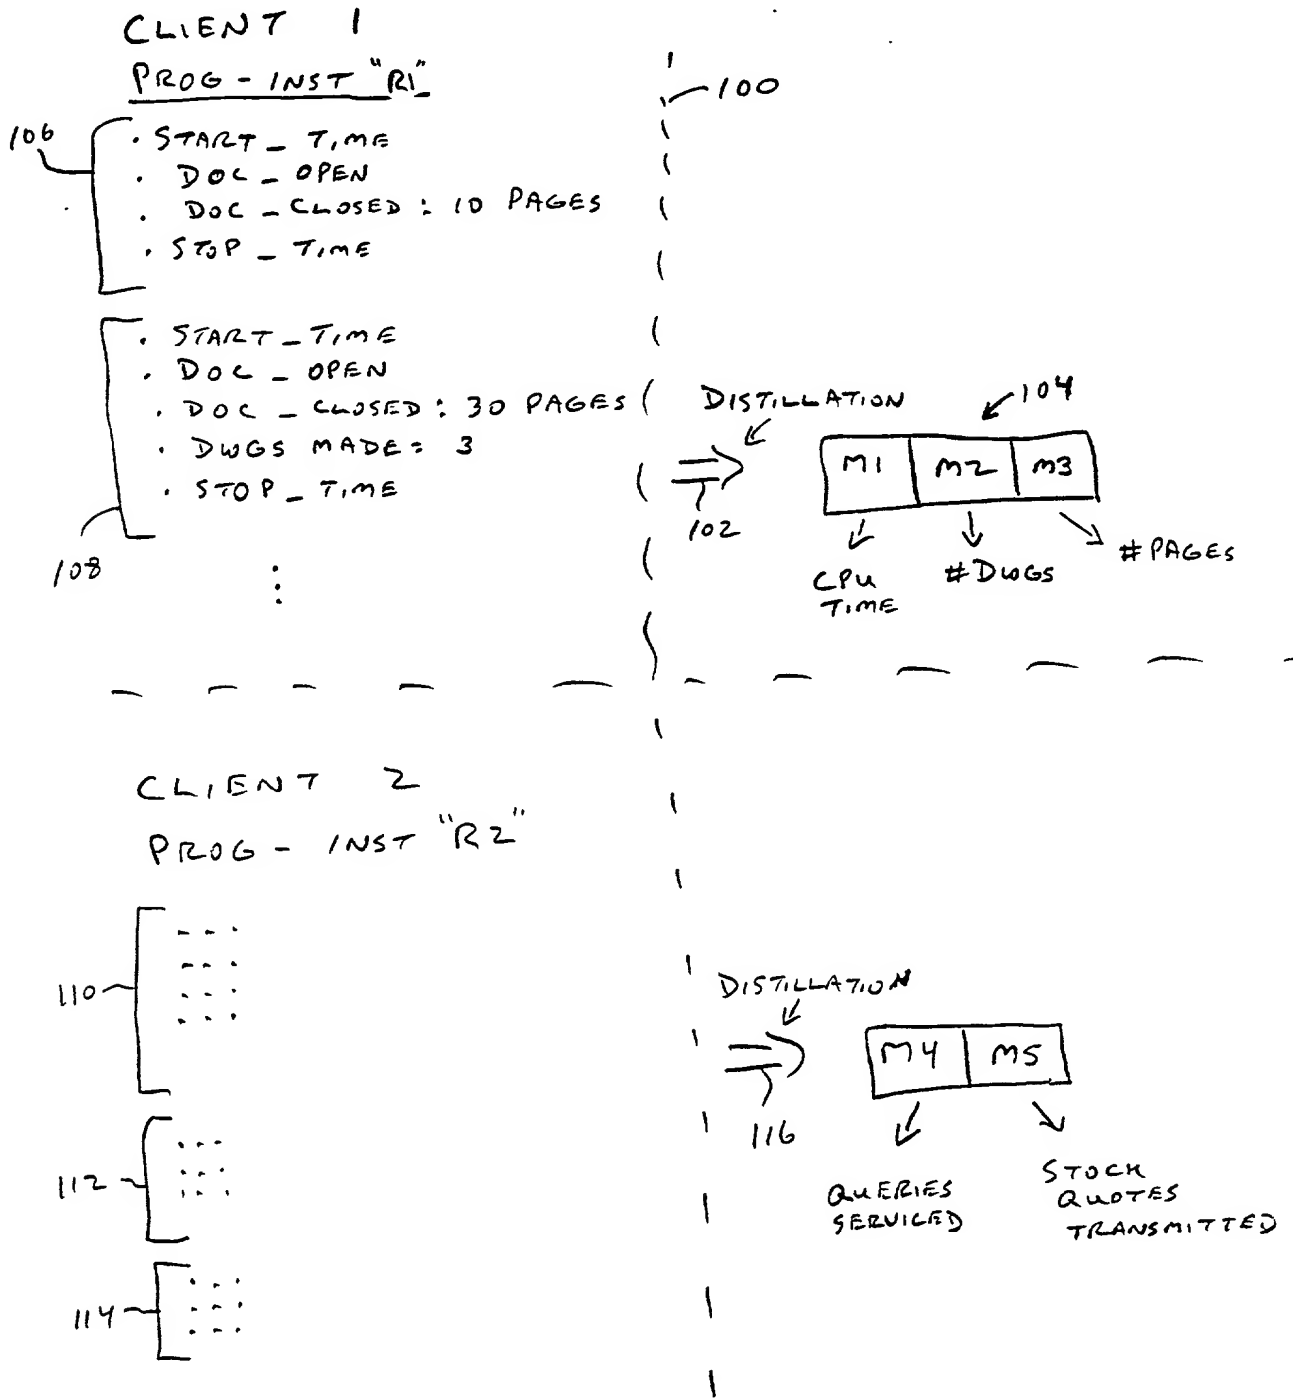 CLIENT 1
PROG - INST "R1"
100
106
· START _ TIME
· DOC _ OPEN
· DOC _ CLOSED : 10 PAGES
· STOP _ TIME
· START _ TIME
· DOC _ OPEN
· DOC _ CLOSED : 30 PAGES
· DWGS MADE = 3
· STOP _ TIME
108
DISTILLATION
104
M1 M2 M3
102
CPU
TIME
#DWGS
#PAGES
CLIENT 2
PROG - INST "R2"
110
112
114
DISTILLATION
M4 M5
116
QUERIES
SERVICED
STOCK
QUOTES
TRANSMITTED